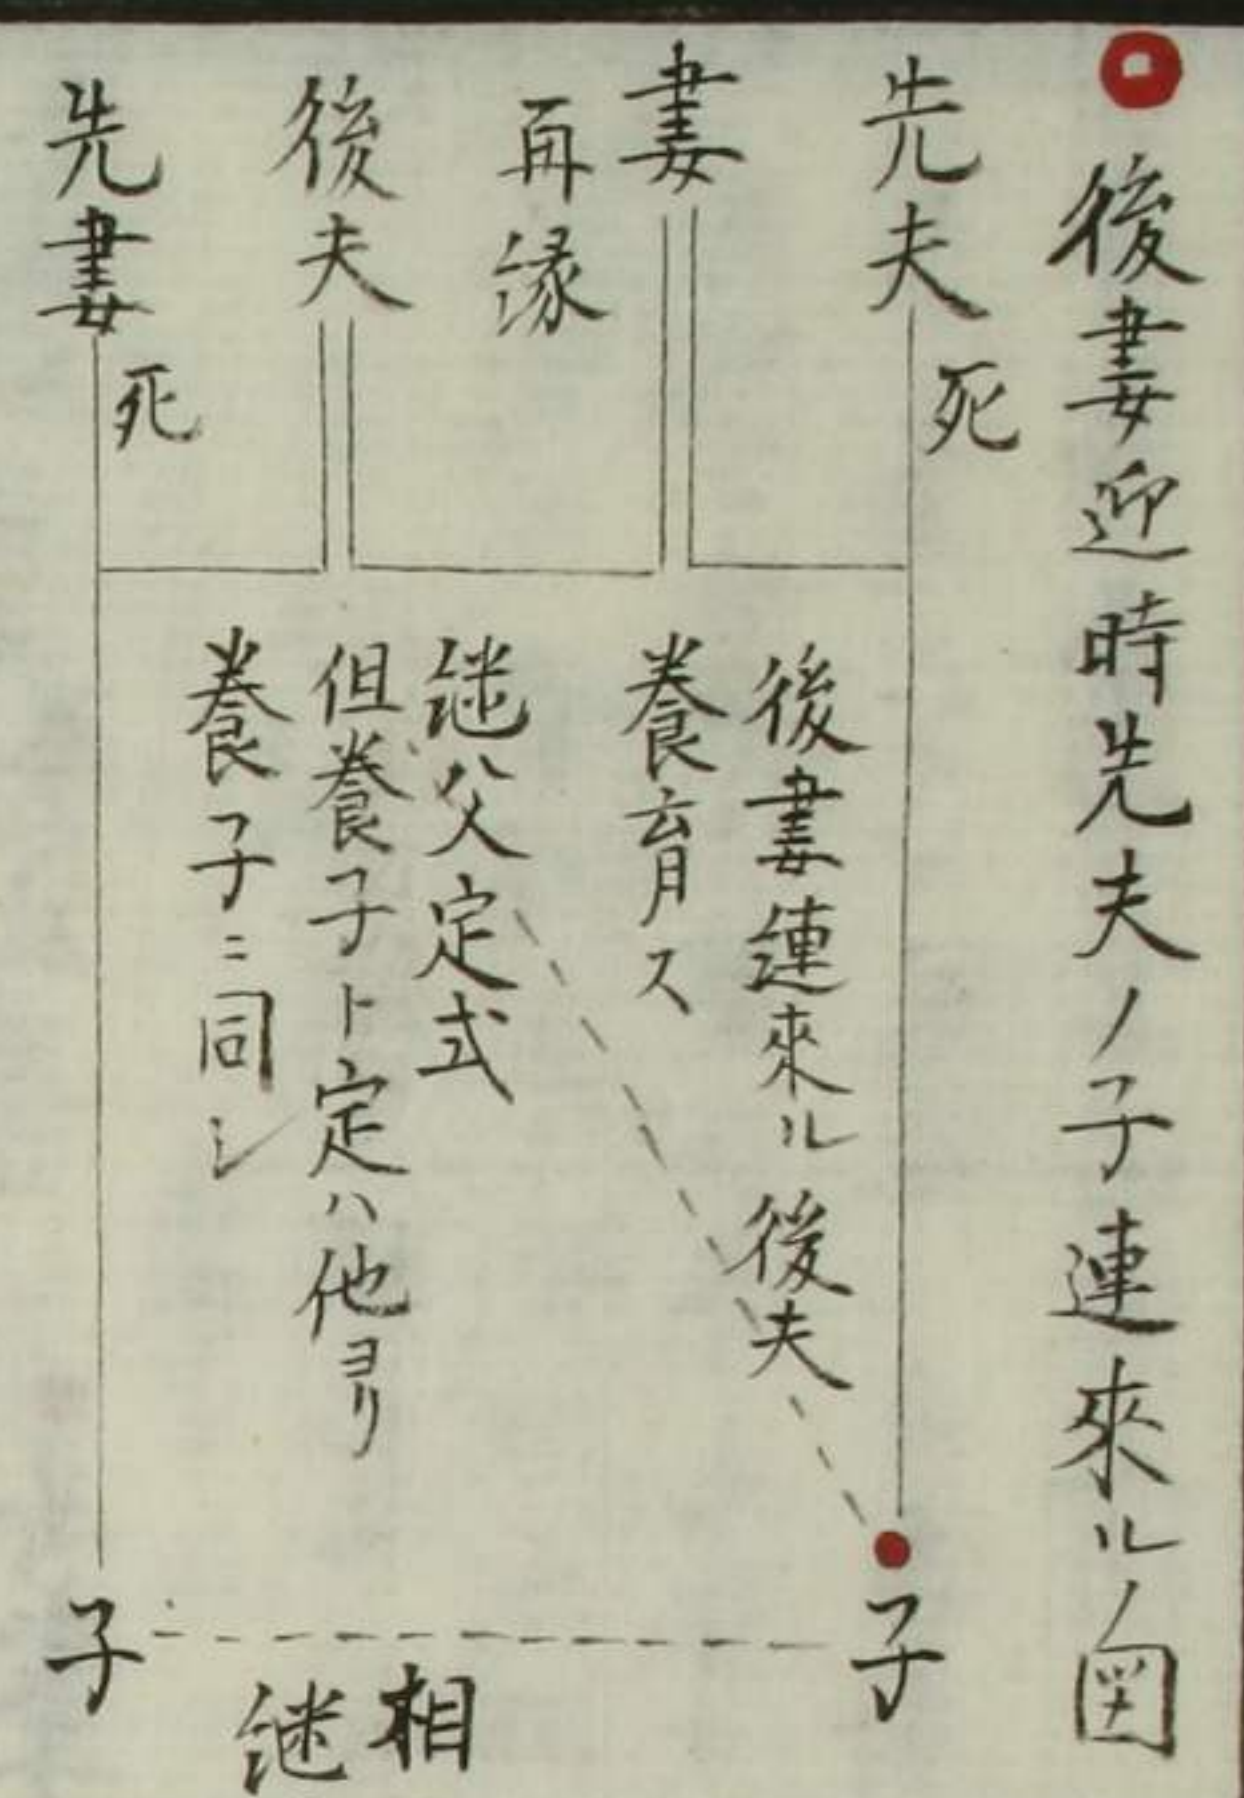 後妻迎時先夫ノ子連來ルノ図
先夫
死
妻
再縁
後夫
先妻
死
後妻連來ル後夫
養育ス
継父定式
但養子ト定ハ他ヨリ
養子ニ同シ
子
相継
子